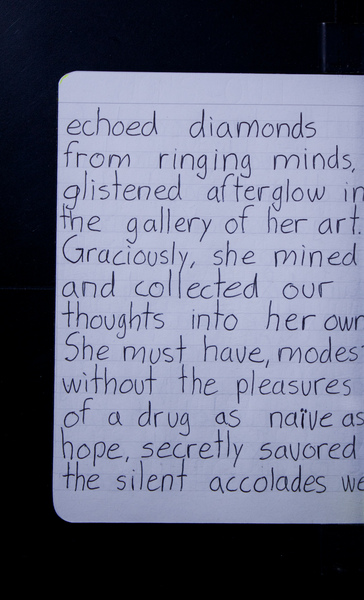 echoed diamonds
from ringing minds,
glistened afterglow in
the gallery of her art.
Graciously, she mined
and collected our
thoughts into her own
She must have, modest
without the pleasures
of a drug as naïve as
hope, secretly savored
the silent accolades we